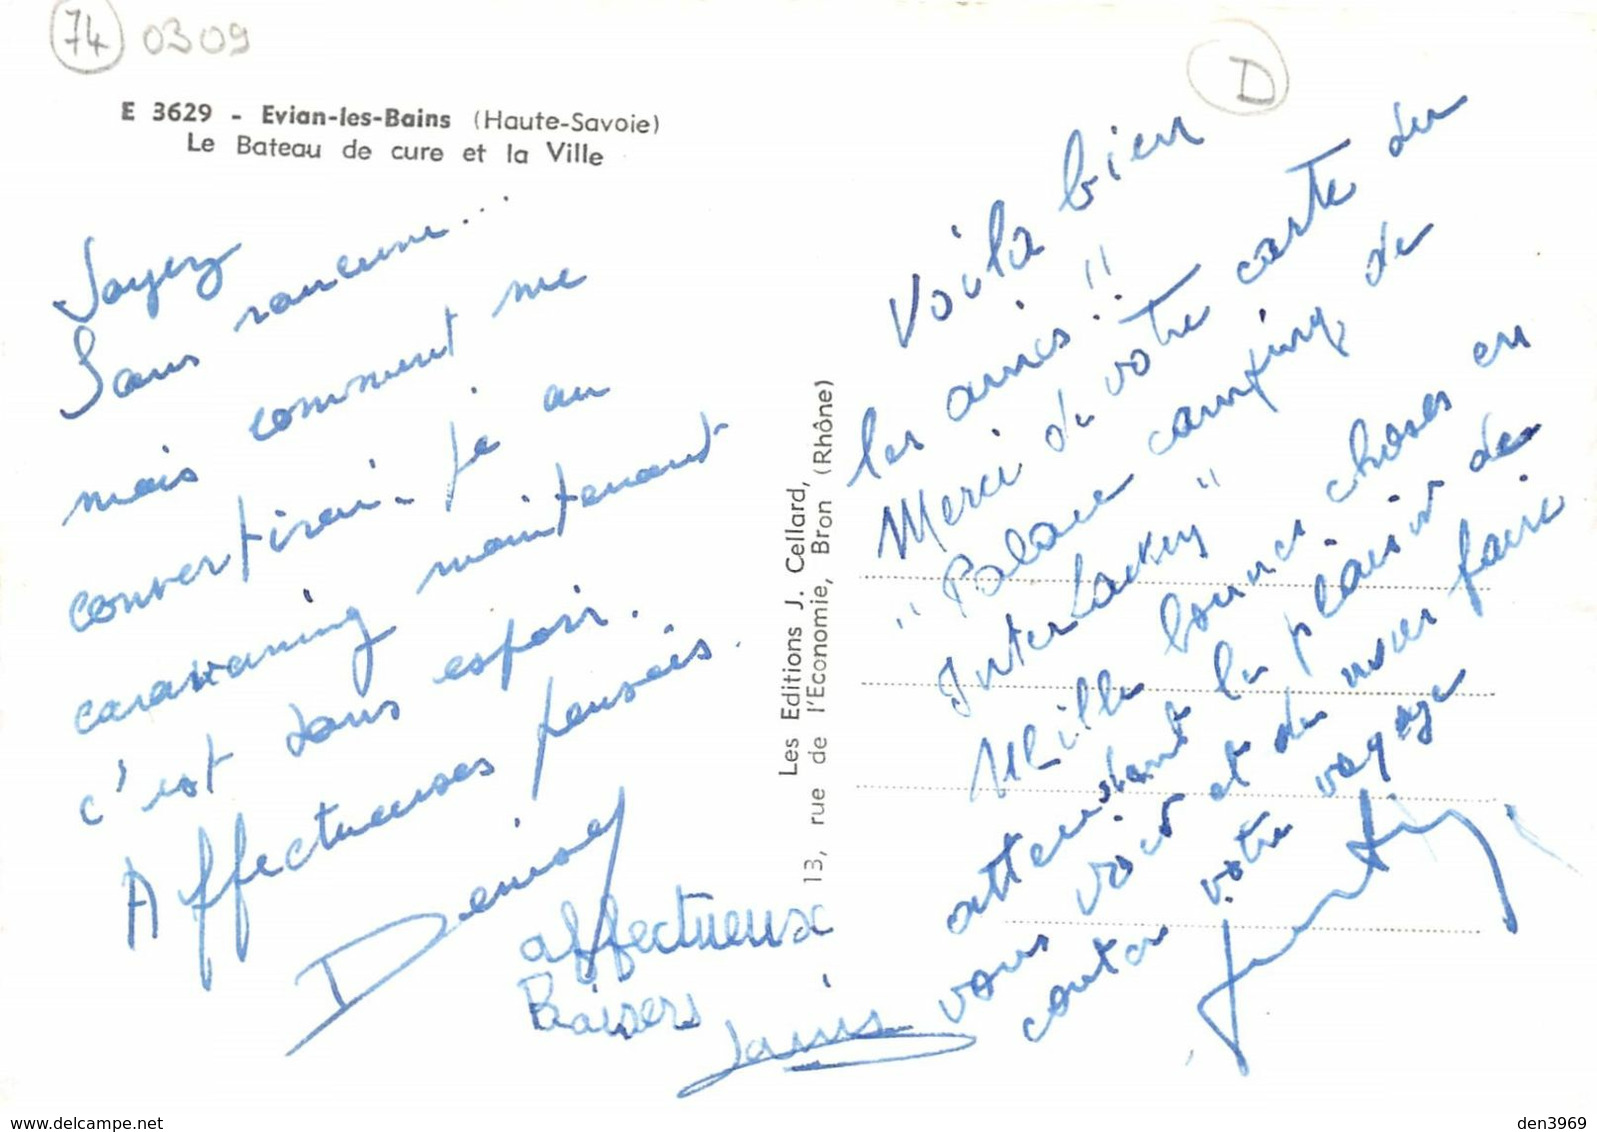 74 0309
D
E 3629 - Evian-les-Bains (Haute-Savoie)
Le Bateau de cure et la Ville
Soyez
Sans rancune...
mais comment me
convertirai-je au
caravaning maintenant
c'est sans espoir.
Affectueuses pensées.
Denise
affectueux
Baisers
Les Editions J. Cellard,
13, rue de l'Economie, Bron (Rhône)
Voilà bien
les amis!!
Merci de votre carte du
"Palace camping de
Interlaken"
Mille bonnes choses en
attendant le plaisir de
vous voir et de nous faire
conter votre voyage
delcampe.net
den3969